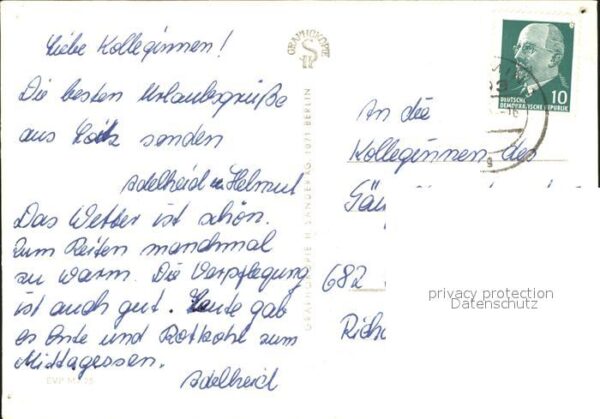 Liebe Kolleginnen!
Die besten Urlaubsgrüße
aus senden
Adelheid u. Helmut
Das Wetter ist schön.
Zum Reiten manchmal
zu warm. Die Verpflegung
ist auch gut. Heute gab
es Ente und Rotkohl zum
Mittagessen.
Adelheid
EVP M
GRAPHOKOPIE
GRAPHOKOPIE H. SANDER KG, BERLIN
DEUTSCHE
DEMOKRATISCHE REPUBLIK
10
An die
Kolleginnen des
682
privacy protection
Datenschutz